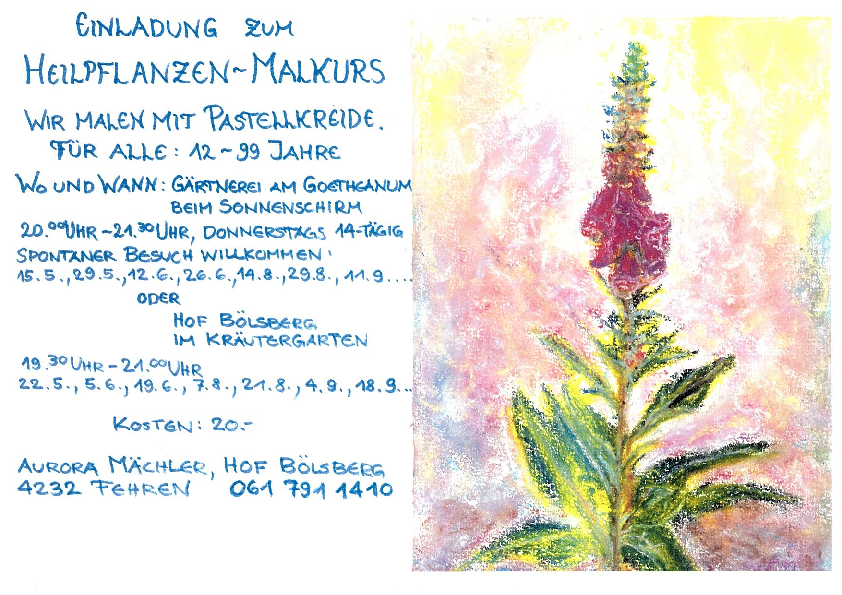 EINLADUNG ZUM
HEILPFLANZEN~MALKURS
WIR MALEN MIT PASTELLKREIDE.
FÜR ALLE: 12~99 JAHRE
WO UND WANN: GÄRTNEREI AM GOETHEANUM
BEIM SONNENSCHIRM
20.00 UHR~21.30 UHR, DONNERSTAGS 14-TÄGIG
SPONTANER BESUCH WILLKOMMEN!
15.5., 29.5., 12.6., 26.6., 14.8., 29.8., 11.9....
ODER
HOF BÖLSBERG
IM KRÄUTERGARTEN
19.30 UHR-21.00 UHR
22.5., 5.6., 19.6., 7.8., 21.8., 4.9., 18.9...
KOSTEN: 20.-
AURORA MÄCHLER, HOF BÖLSBERG
4232 FEHREN 061 791 1410